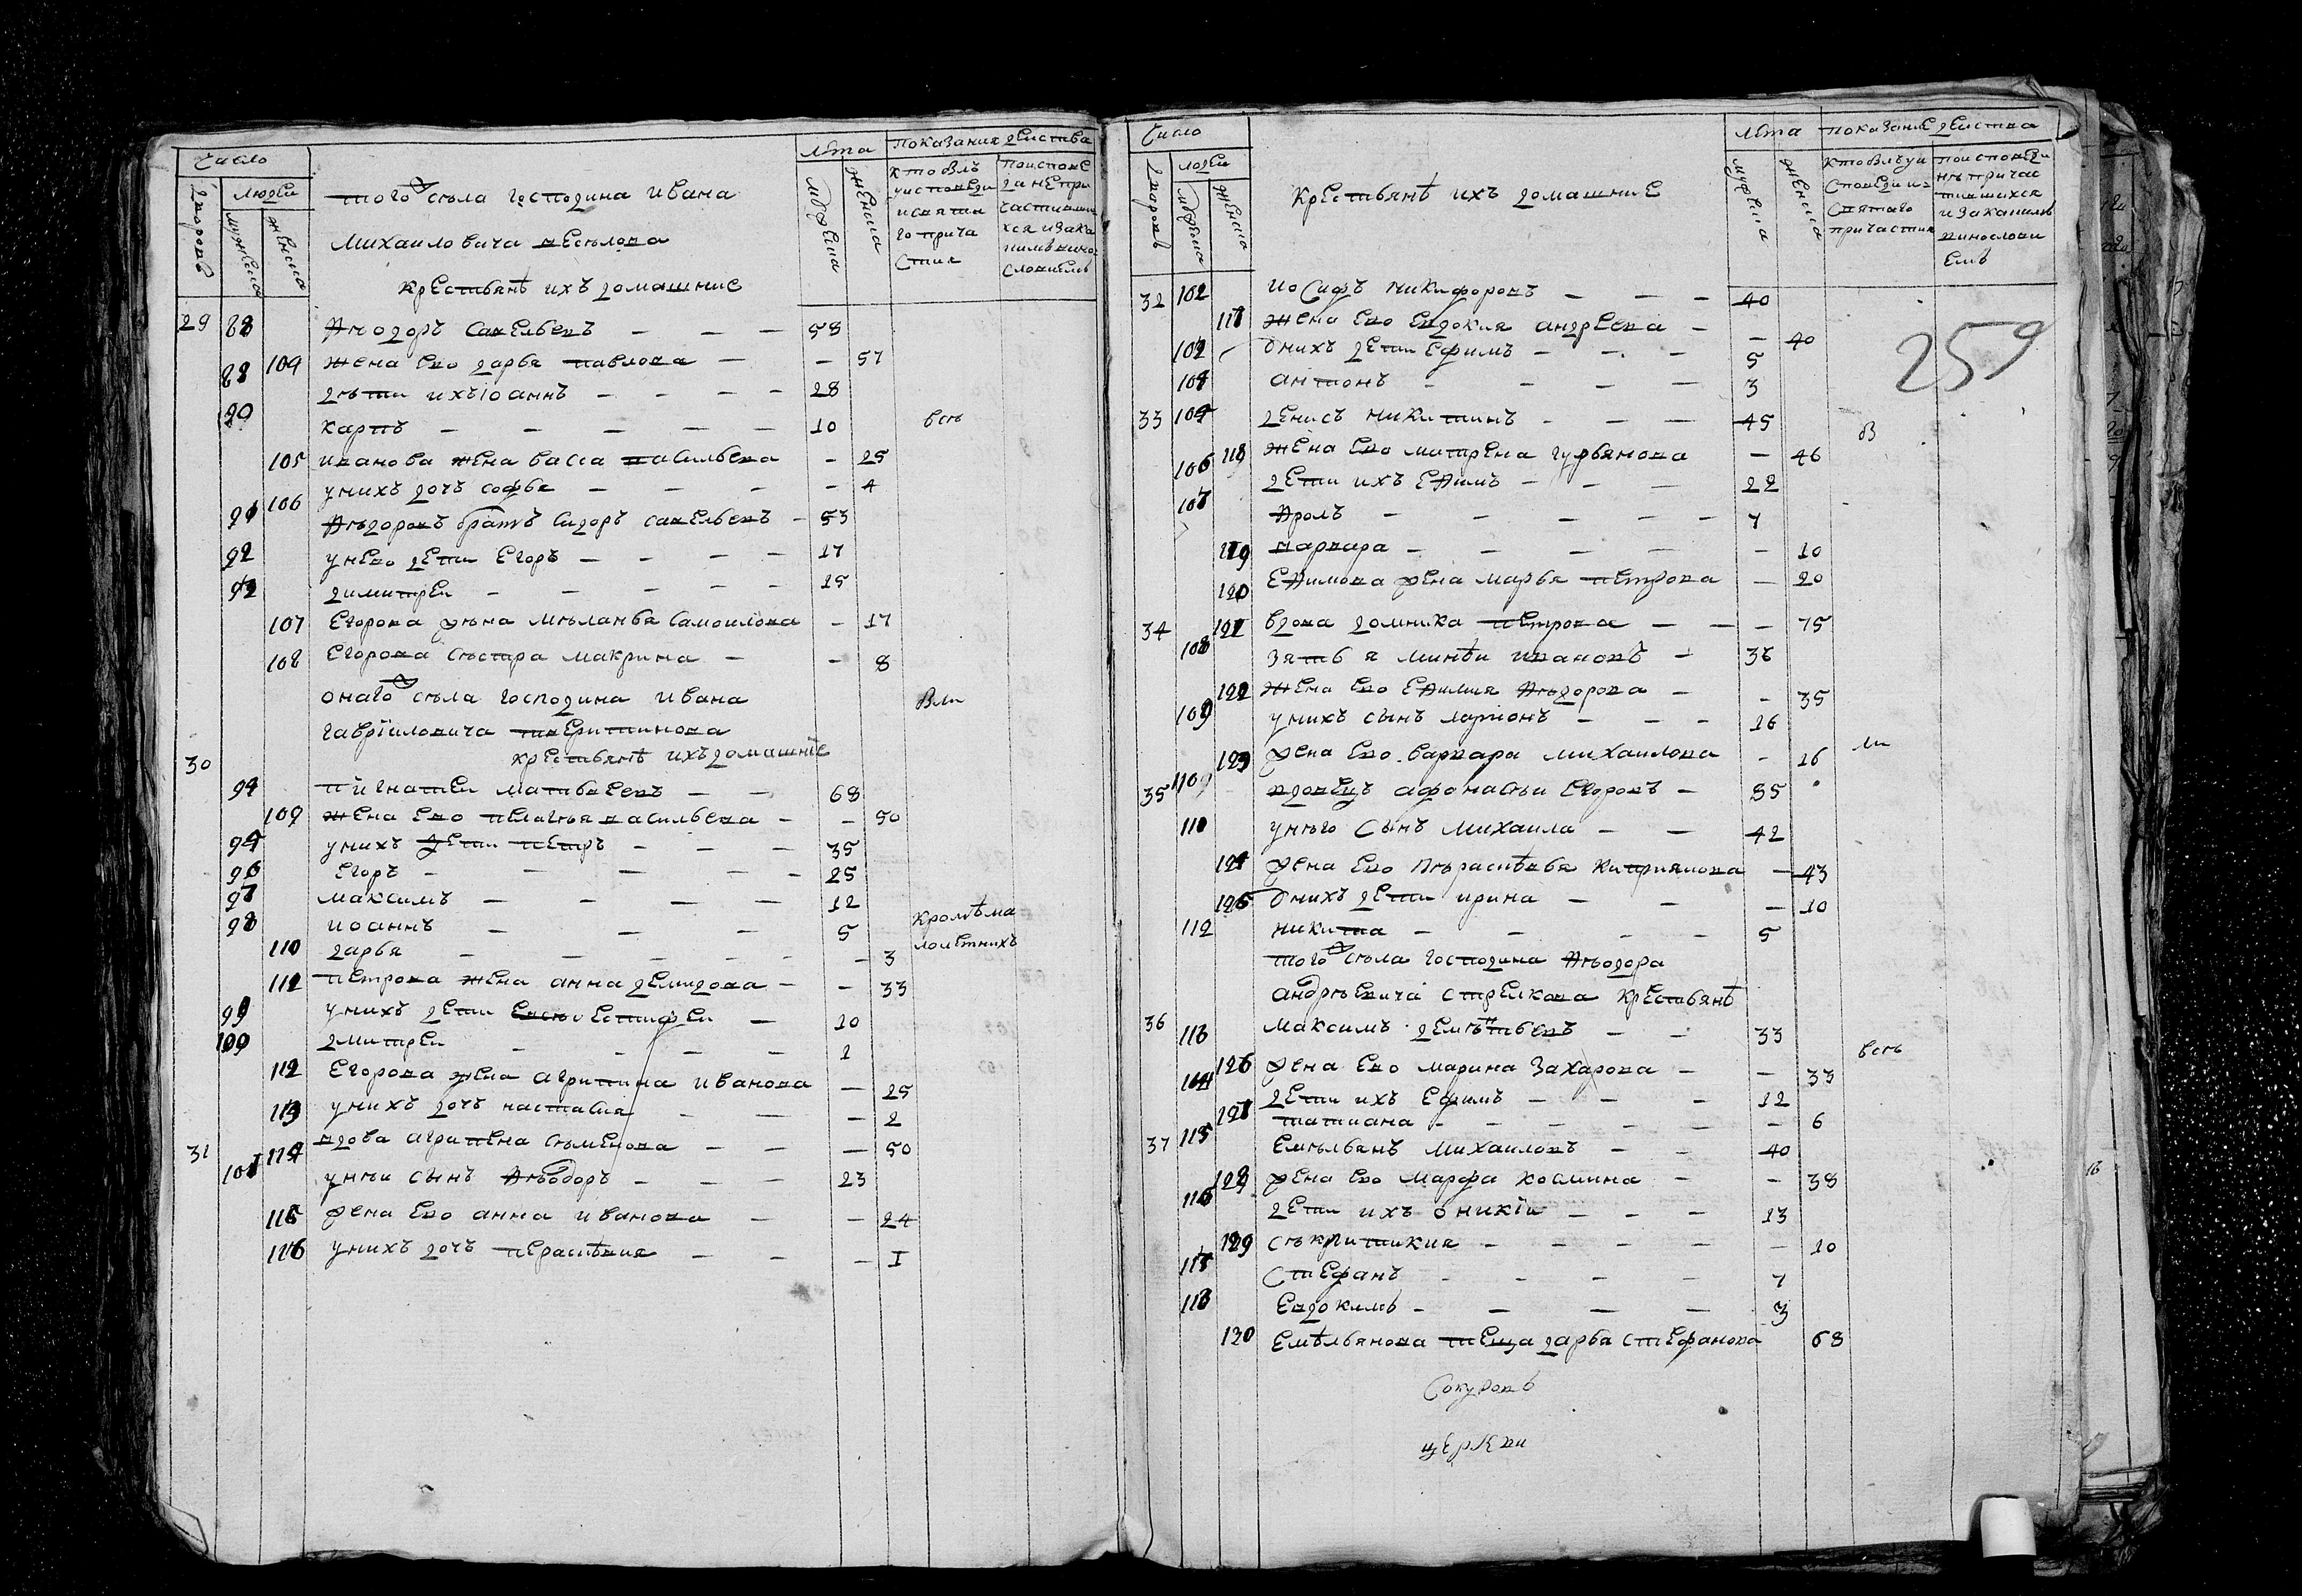 Число
Лѣта
показания действа
людей
дворовъ
мужеска
женска
мужеска
женска
тогоꙋ села господина ивана
михаиловича веселова
крестьянѣ ихъ домашние
29 88 Ѳиодоръ савельевъ — — — 58
104 жена ево дарья павлова — — 57
дѣти ихъ иоаннъ — — — — 28
90 карпъ — — — — — 10
всѣ
105 иванова жена васса васильева — 25
106 у нихъ дочъ софья — — — — 4
91 Ѳедоровъ братъ сидоръ савельевъ — 53
92 у нево дети егоръ — — — — 17
димитреи — — — — 15
107 Егорова жена меланья самоилова — 17
108 Егорова сестра макрина — — 8
онаго села господина ивана
гавріиловича
крестьянѣ ихъ домашніе
30
94 игнатеи матвеевъ — — 68
109 жена ево пелагея васильева — — 50
у нихъ дети петръ — — — 35
96 Егоръ — — — — — 25
97 максимъ — — — — 12
98 иоаннъ — — — 5
кромѣ ма
лолетнихъ
110 дарья — — — — — 3
петрова жена анна демидова — — 33
99 у нихъ дети естифеи — 10
дмитреи — — — — 1
112 Егорова жена агрипина иванова — 25
113 у нихъ дочъ настасия — — — 2
31 114 вдова агрипена семенова — — — 50
101 у неи сынъ Ѳеодоръ — — — 23
115 жена ево анна иванова — — 24
116 у нихъ дочъ перасковия — — — 1
Число
лѣта
показание действа
людеи
дворовъ
мужеска
женска
мужеска
женска
крестьянѣ ихъ домашние
259
32 102 иосифъ никифоровъ — — — 40
117 жена ево евдокия андреева — — 40
у нихъ дети ефимъ — — — 5
антонъ — — — — 3
33 105 денисъ никитинъ — — — 45
118 жена ево матрена гурьянова — 46
106 дети ихъ еѲимъ — — — 22
107 Ѳролъ — — — — — 7
119 варвара — — — — — 10
120 еѲимова жена марья петрова — 20
34 121 вдова домника петрова — — — 75
108 зять я минѣи ивановъ — 36
122 жена ево еѲимия Ѳедорова — — 35
109 у нихъ сынъ ларионъ — — — 16
123 жена ево варвара михаилова — 16
35 вдовецъ афонасеи егоровъ — 85
110 у него сынъ михаила — — 42
124 жена ево перасковья киприянова — 43
125 у нихъ дети ирина — — — 10
112 никита — — — — 5
тогоꙋ села господина Ѳеодора
андреевича стрелкова крестьянѣ
36 113 максимъ деметьевъ — — 33
всѣ
126 жена ево марина захарова — — 33
114 дети ихъ ефимъ — — — 12
127 татиана — — — — — 6
37 115 Емельянъ михаиловъ — — 40
128 жена ево марфа космина — — 38
116 дети ихъ оникіи — — — 13
129 секлитикия — — — — — 10
117 стефанъ — — — — 7
118 Евдокимъ — — — — 3
130 Емѣльянова теща дарья стефанова 68
церкви